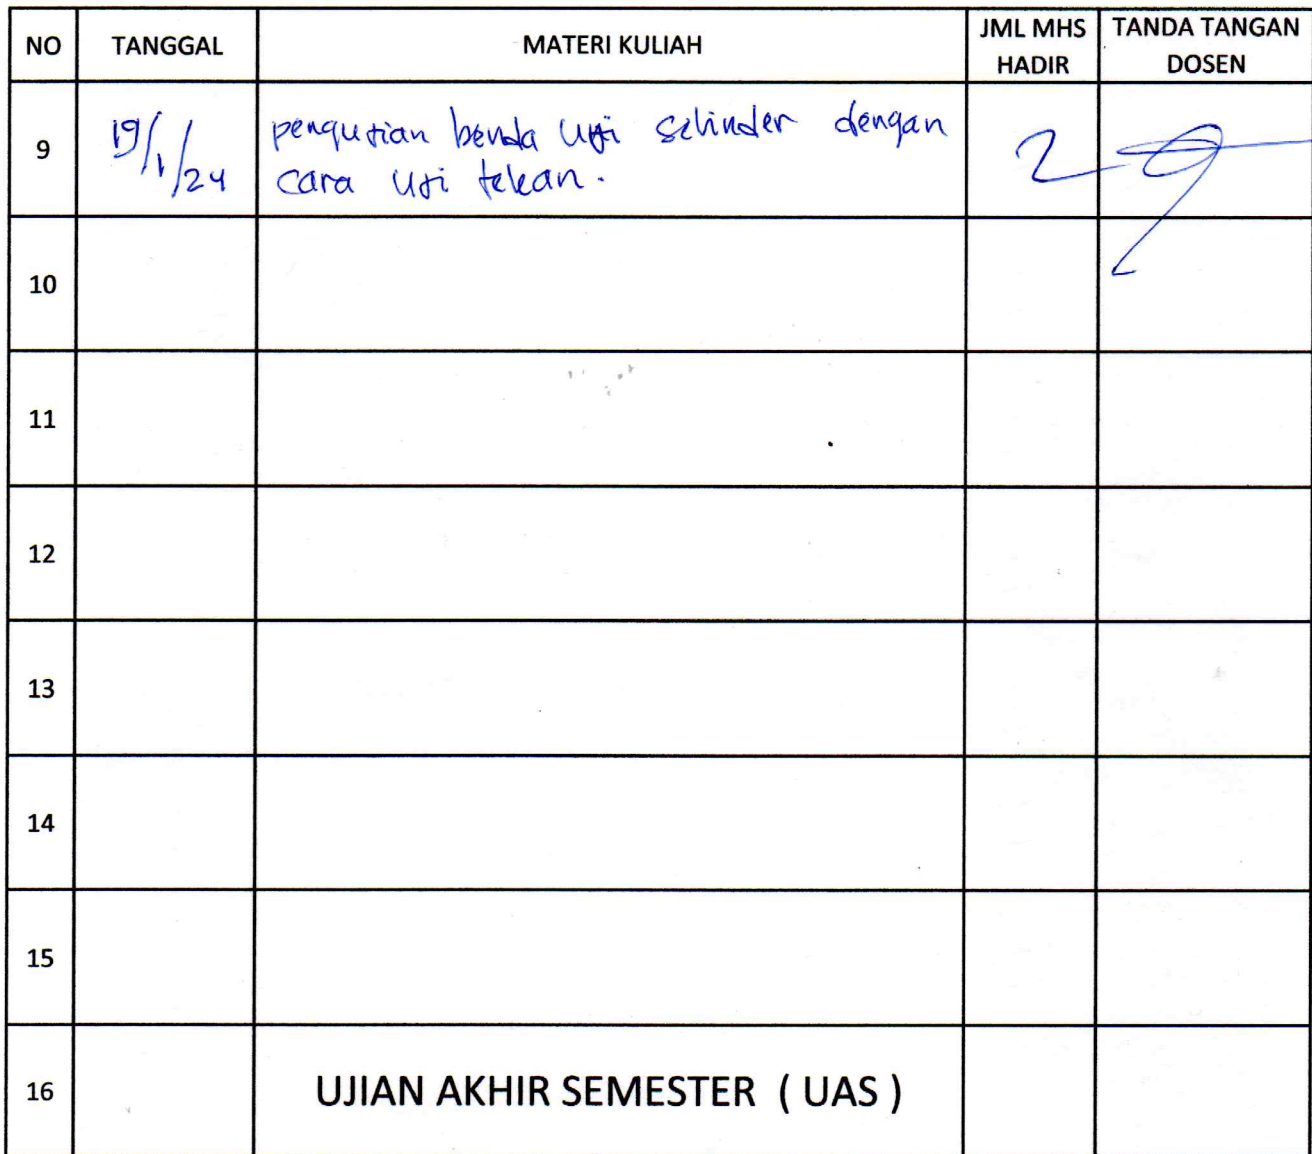 NO TANGGAL MATERI KULIAH JML MHS HADIR TANDA TANGAN DOSEN
9 19/1/24 pengujian benda uji selinder dengan
cara uji tekan. 2
10
11
12
13
14
15
16 UJIAN AKHIR SEMESTER ( UAS )